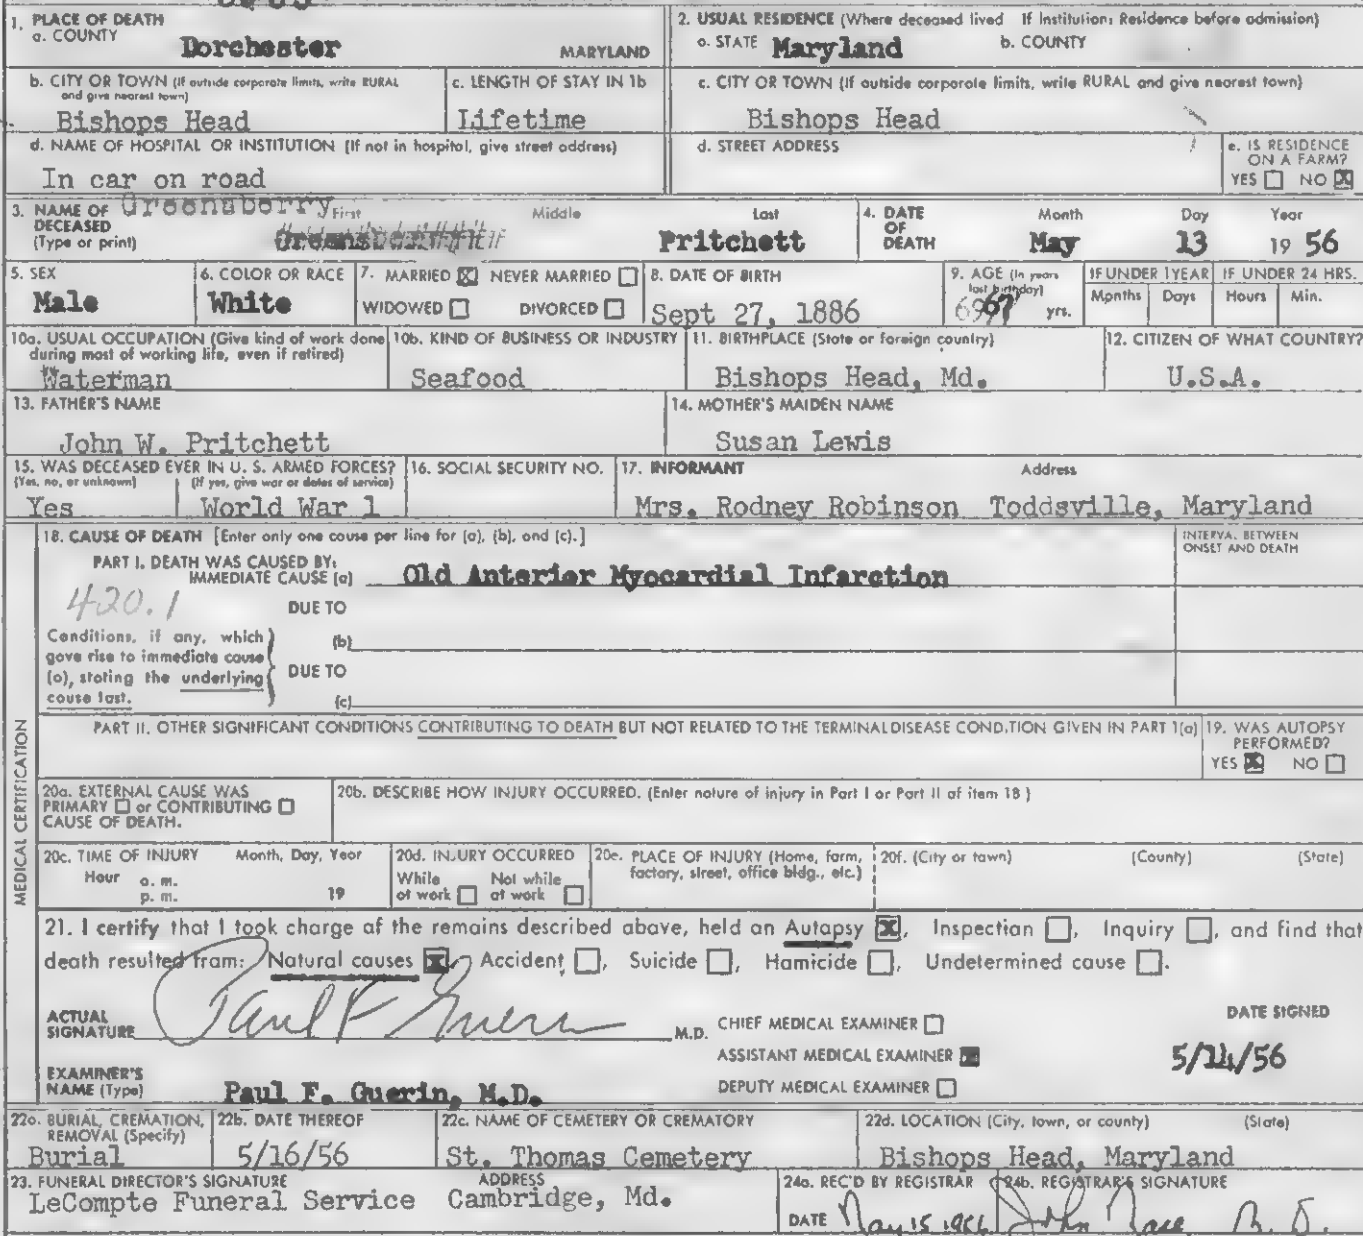 1. PLACE OF DEATH
a. COUNTY
Dorchester MARYLAND
2. USUAL RESIDENCE (Where deceased lived If Institution: Residence before admission)
a. STATE Maryland b. COUNTY
b. CITY OR TOWN (If outside corporate limits, write RURAL and give nearest town)
Bishops Head
c. LENGTH OF STAY IN 1b
Lifetime
c. CITY OR TOWN (If outside corporate limits, write RURAL and give nearest town)
Bishops Head
d. NAME OF HOSPITAL OR INSTITUTION (If not in hospital, give street address)
In car on road
d. STREET ADDRESS
e. IS RESIDENCE ON A FARM?
YES ☐ NO ☒
3. NAME OF DECEASED (Type or print)
Greensberry First Middle Last
Pritchett
4. DATE OF DEATH Month Day Year
May 13 19 56
5. SEX
Male
6. COLOR OR RACE
White
7. MARRIED ☒ NEVER MARRIED ☐
WIDOWED ☐ DIVORCED ☐
8. DATE OF BIRTH
Sept 27, 1886
9. AGE (In years last birthday)
69 yrs.
IF UNDER 1 YEAR
Months Days
IF UNDER 24 HRS.
Hours Min.
10a. USUAL OCCUPATION (Give kind of work done during most of working life, even if retired)
Waterman
10b. KIND OF BUSINESS OR INDUSTRY
Seafood
11. BIRTHPLACE (State or foreign country)
Bishops Head, Md.
12. CITIZEN OF WHAT COUNTRY?
U.S.A.
13. FATHER'S NAME
John W. Pritchett
14. MOTHER'S MAIDEN NAME
Susan Lewis
15. WAS DECEASED EVER IN U. S. ARMED FORCES?
(Yes, no, or unknown) (If yes, give war or dates of service)
Yes World War 1
16. SOCIAL SECURITY NO.
17. INFORMANT Address
Mrs. Rodney Robinson Toddsville, Maryland
MEDICAL CERTIFICATION
18. CAUSE OF DEATH [Enter only one cause per line for (a), (b), and (c).]
INTERVAL BETWEEN ONSET AND DEATH
PART I. DEATH WAS CAUSED BY:
IMMEDIATE CAUSE (a) Old Anterior Myocardial Infarction
420.1 DUE TO
Conditions, if any, which gave rise to immediate cause (a), stating the underlying cause last.
(b)
DUE TO
(c)
PART II. OTHER SIGNIFICANT CONDITIONS CONTRIBUTING TO DEATH BUT NOT RELATED TO THE TERMINAL DISEASE CONDITION GIVEN IN PART 1(a)
19. WAS AUTOPSY PERFORMED?
YES ☒ NO ☐
20a. EXTERNAL CAUSE WAS PRIMARY ☐ or CONTRIBUTING ☐ CAUSE OF DEATH.
20b. DESCRIBE HOW INJURY OCCURRED. (Enter nature of injury in Part I or Part II of item 18)
20c. TIME OF INJURY Month, Day, Year
Hour a. m.
p. m. 19
20d. INJURY OCCURRED
While at work ☐ Not while at work ☐
20e. PLACE OF INJURY (Home, farm, factory, street, office bldg., etc.)
20f. (City or town) (County) (State)
21. I certify that I took charge of the remains described above, held an Autopsy ☒, Inspection ☐, Inquiry ☐, and find that
death resulted from: Natural causes ☒, Accident ☐, Suicide ☐, Homicide ☐, Undetermined cause ☐.
ACTUAL SIGNATURE Paul F Guerin M.D.
CHIEF MEDICAL EXAMINER ☐
ASSISTANT MEDICAL EXAMINER ☒
DEPUTY MEDICAL EXAMINER ☐
DATE SIGNED
5/14/56
EXAMINER'S NAME (Type) Paul F. Guerin, M.D.
22a. BURIAL, CREMATION, REMOVAL (Specify)
Burial
22b. DATE THEREOF
5/16/56
22c. NAME OF CEMETERY OR CREMATORY
St. Thomas Cemetery
22d. LOCATION (City, town, or county) (State)
Bishops Head, Maryland
23. FUNERAL DIRECTOR'S SIGNATURE ADDRESS
LeCompte Funeral Service Cambridge, Md.
24a. REC'D BY REGISTRAR
DATE May 15 1956
24b. REGISTRAR'S SIGNATURE
John